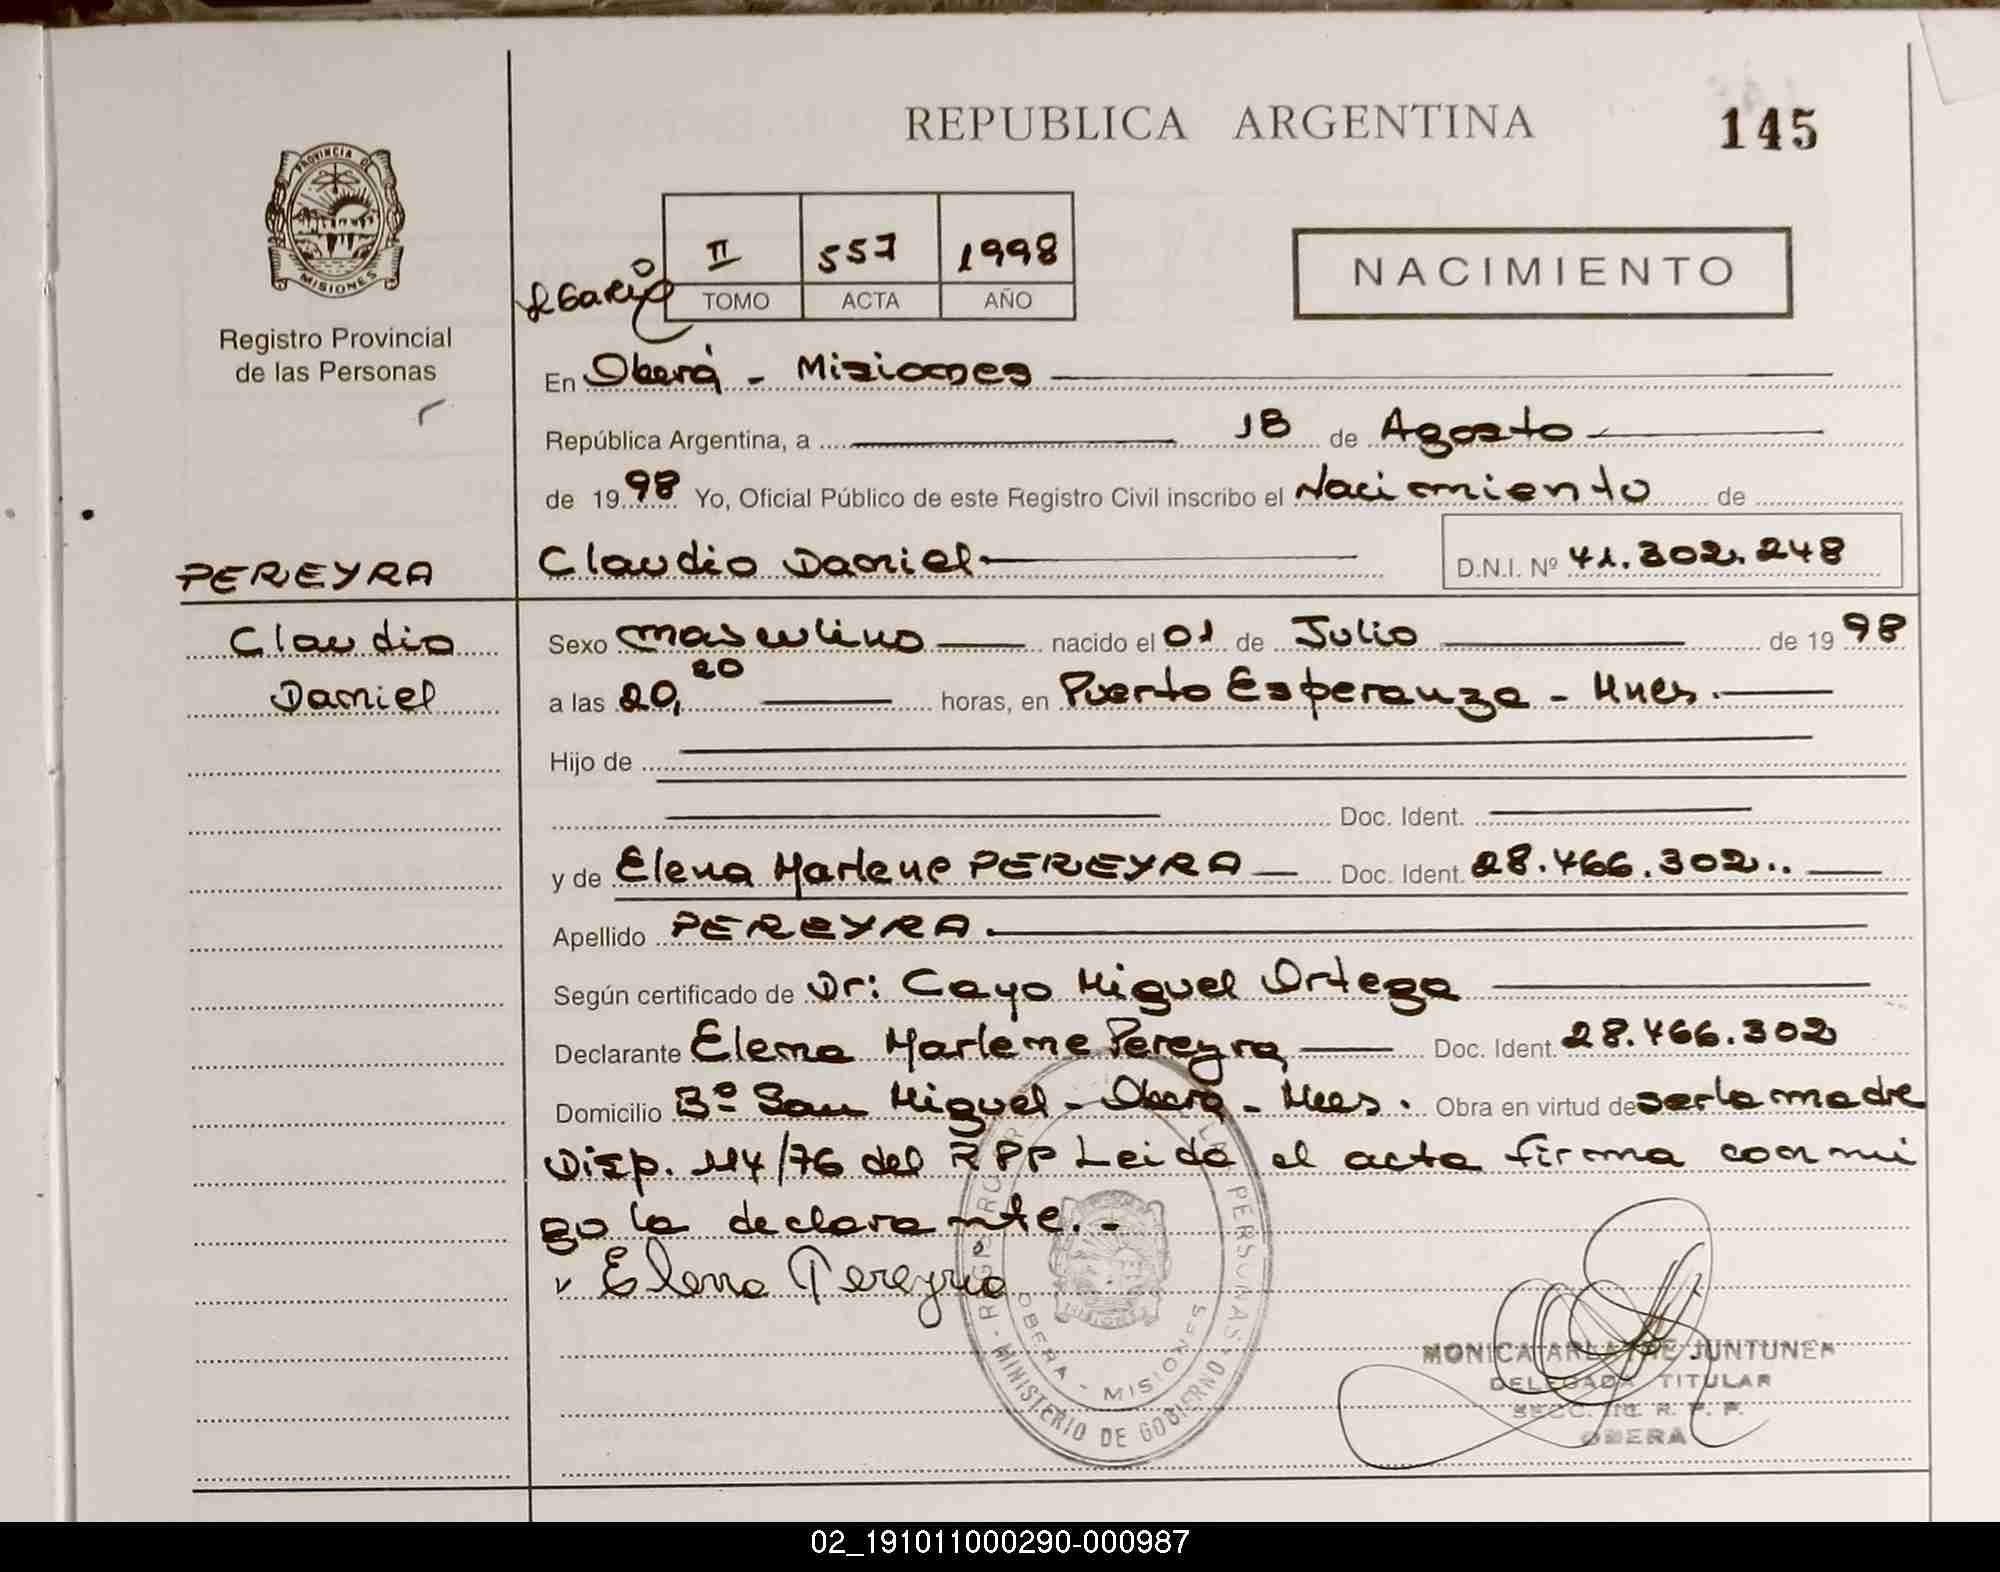 REPUBLICA ARGENTINA
145
PROVINCIA DE
MISIONES
Registro Provincial
de las Personas
II 557 1998
TOMO ACTA AÑO
NACIMIENTO
En Oberá - Misiones
República Argentina, a 18 de Agosto
de 1998 Yo, Oficial Público de este Registro Civil inscribo el Nacimiento de
PEREYRA Claudio Daniel D.N.I. Nº 41.302.248
Claudio Sexo masculino nacido el 01 de Julio de 1998
Daniel a las 20,20 horas, en Puerto Esperanza - Mnes.
Hijo de
Doc. Ident.
y de Elena Marlene PEREYRA Doc. Ident. 28.466.302..
Apellido PEREYRA.
Según certificado de Dr: Cayo Miguel Ortega
Declarante Elena Marlene Pereyra Doc. Ident. 28.466.302
Domicilio Bº San Miguel - Oberá - Mnes. Obra en virtud de ser la madre
Disp. 114/76 del RPP Leida el acta firma conmi
go la declarante.-
Elena Pereyra
PERSONAS
MINISTERIO DE GOBIERNO
OBERA - MISIONES
MISIONES
MONICA JUNTUNEN
DELEGADA TITULAR
SECC. R. P. P.
OBERA
02_191011000290-000987